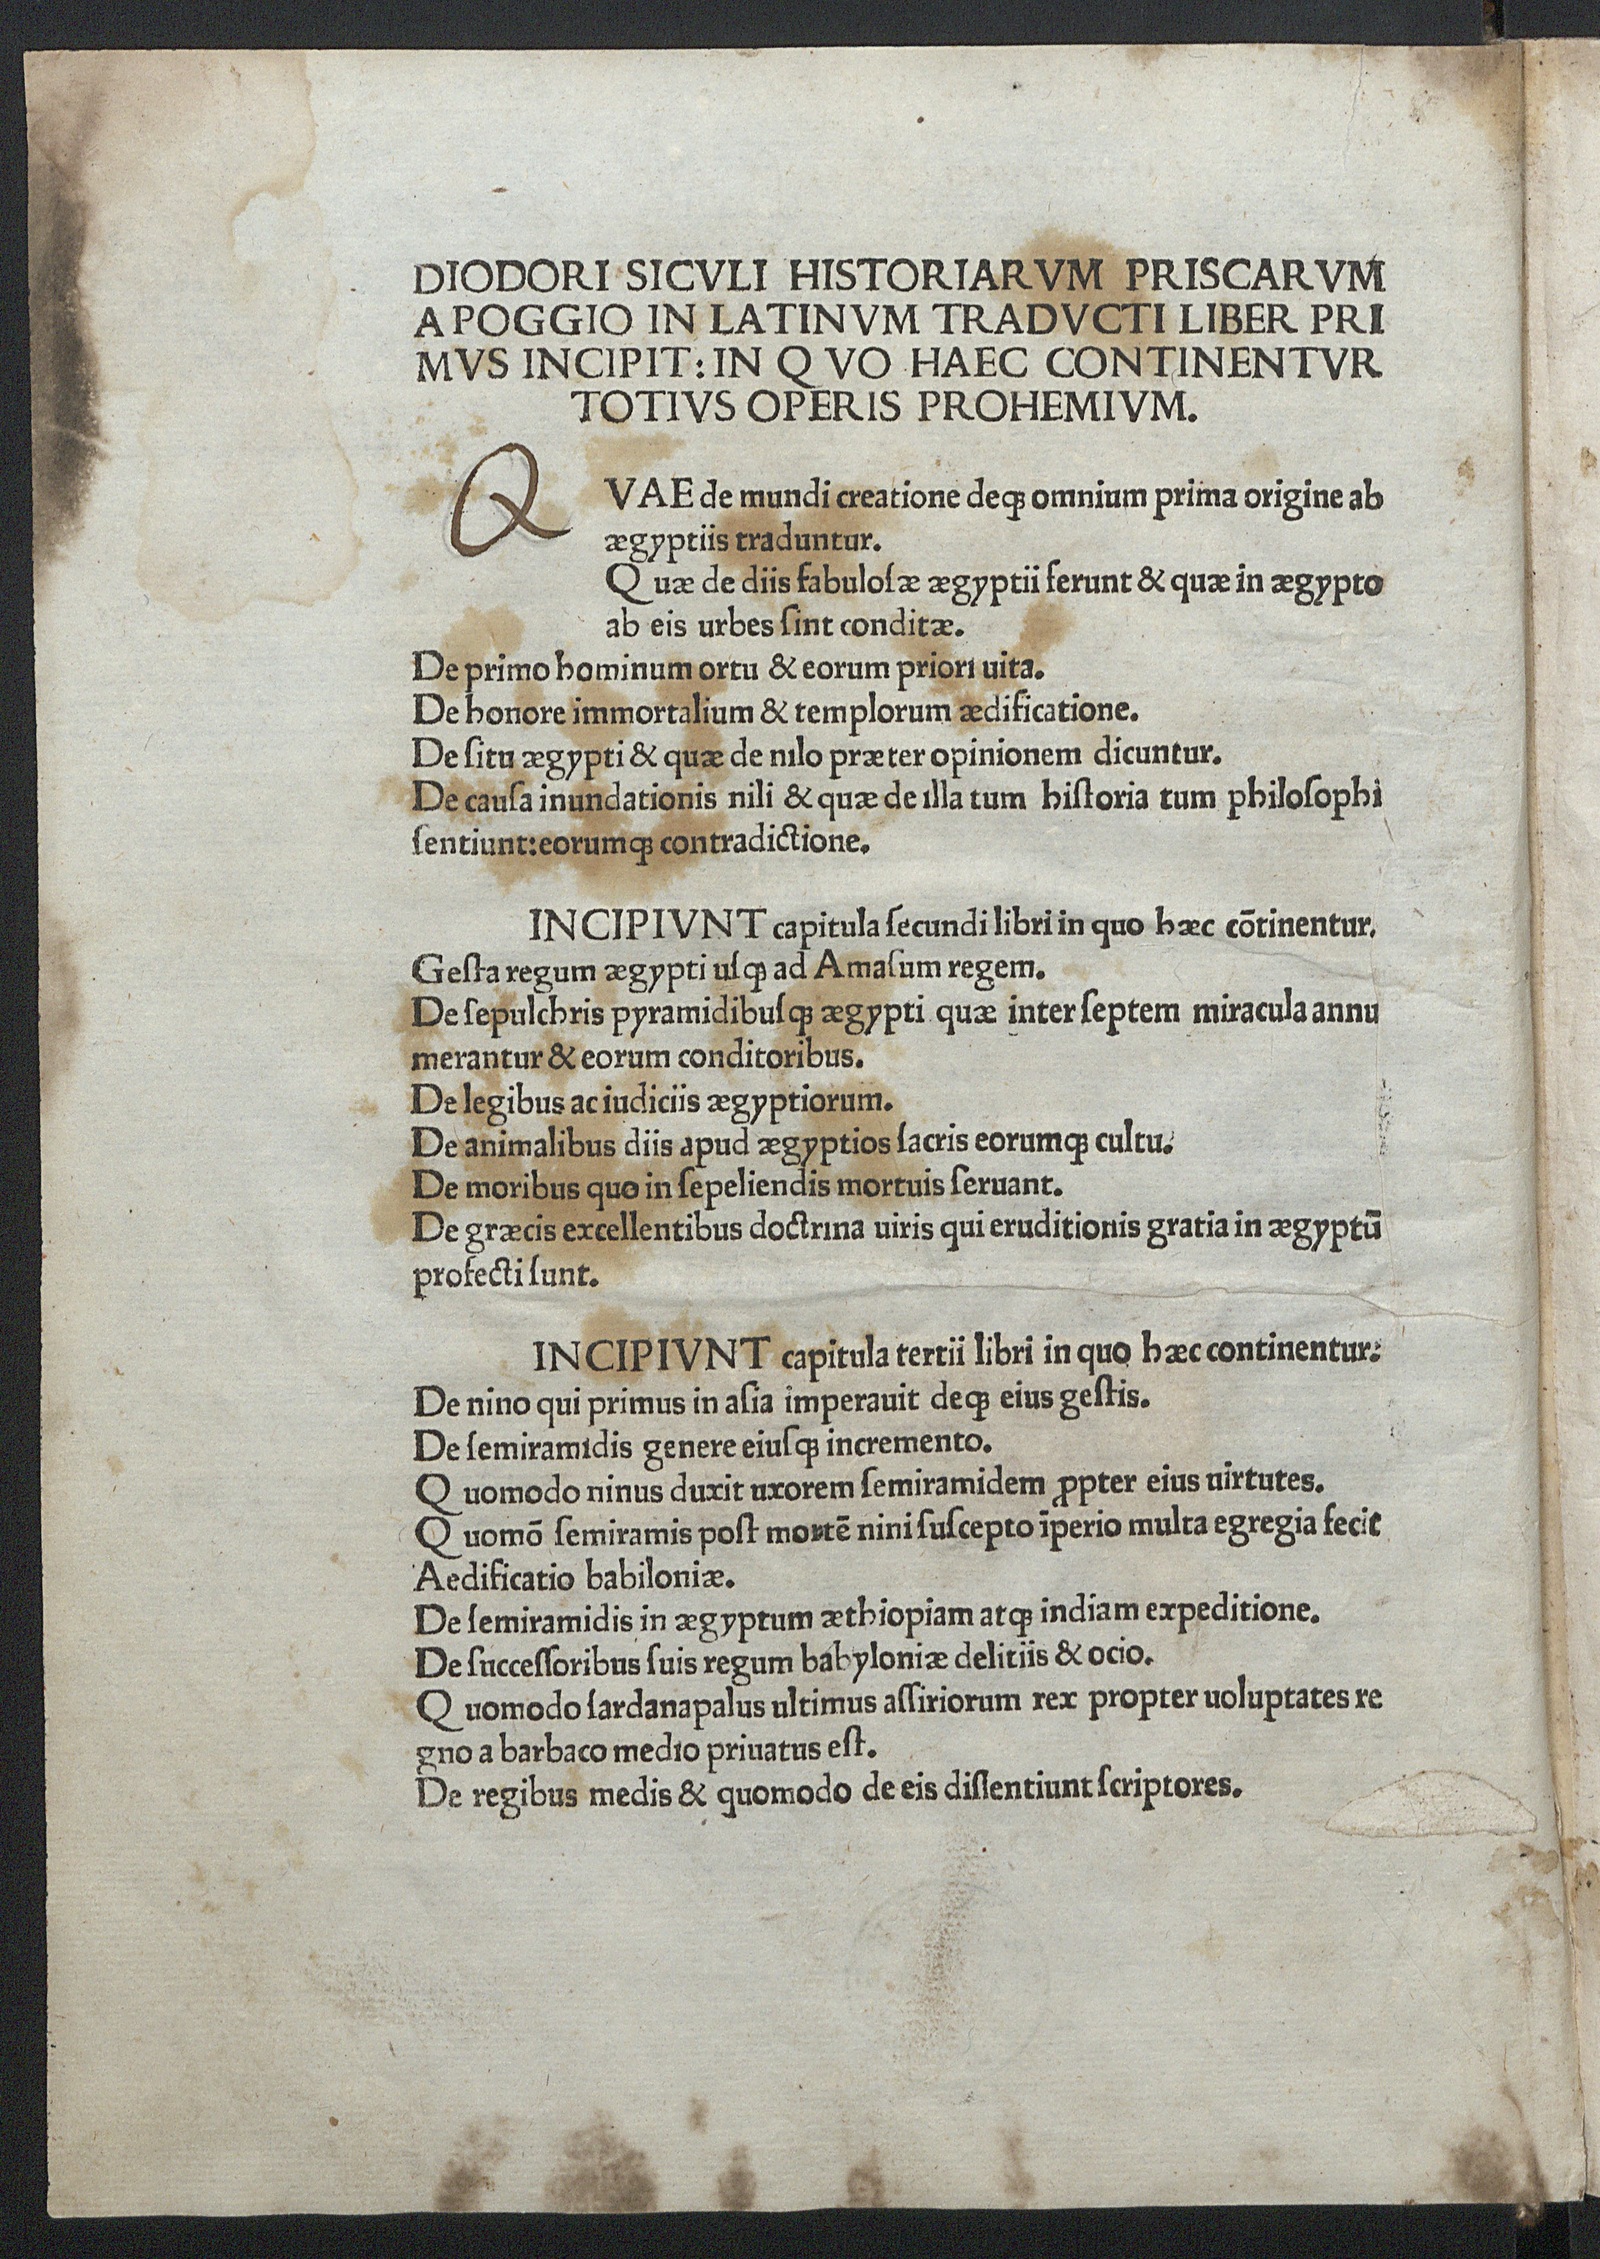 DIODORI SICVLI HISTORIARVM PRISCARVM
A POGGIO IN LATINVM TRADVCTI LIBER PRI
MVS INCIPIT: IN QVO HAEC CONTINENTVR
TOTIVS OPERIS PROHEMIVM.
QVAE de mundi creatione deqꝫ omnium prima origine ab
ægyptiis traduntur.
Quæ de diis fabuloſæ ægyptii ferunt & quæ in ægypto
ab eis urbes ſint conditæ.
De primo hominum ortu & eorum priori uita.
De honore immortalium & templorum ædificatione.
De ſitu ægypti & quæ de nilo præter opinionem dicuntur.
De cauſa inundationis nili & quæ de illa tum hiſtoria tum philoſophi
ſentiunt: eorumqꝫ contradictione.
INCIPIVNT capitula ſecundi libri in quo hæc cōtinentur.
Geſta regum ægypti uſqꝫ ad Amaſum regem.
De ſepulchris pyramidibuſqꝫ ægypti quæ inter ſeptem miracula annu
merantur & eorum conditoribus.
De legibus ac iudiciis ægyptiorum.
De animalibus diis apud ægyptios ſacris eorumqꝫ cultu.
De moribus quo in ſepeliendis mortuis ſeruant.
De græcis excellentibus doctrina uiris qui eruditionis gratia in ægyptū
profecti ſunt.
INCIPIVNT capitula tertii libri in quo hæc continentur:
De nino qui primus in aſia imperauit deqꝫ eius geſtis.
De ſemiramidis genere eiuſqꝫ incremento.
Quomodo ninus duxit uxorem ſemiramidem ꝓpter eius uirtutes.
Quomō ſemiramis poſt mortē nini ſuſcepto īperio multa egregia fecit
Aedificatio babiloniæ.
De ſemiramidis in ægyptum æthiopiam atqꝫ indiam expeditione.
De ſucceſſoribus ſuis regum babyloniæ delitiis & ocio.
Quomodo ſardanapalus ultimus aſſiriorum rex propter uoluptates re
gno a barbaco medio priuatus eſt.
De regibus medis & quomodo de eis diſſentiunt ſcriptores.